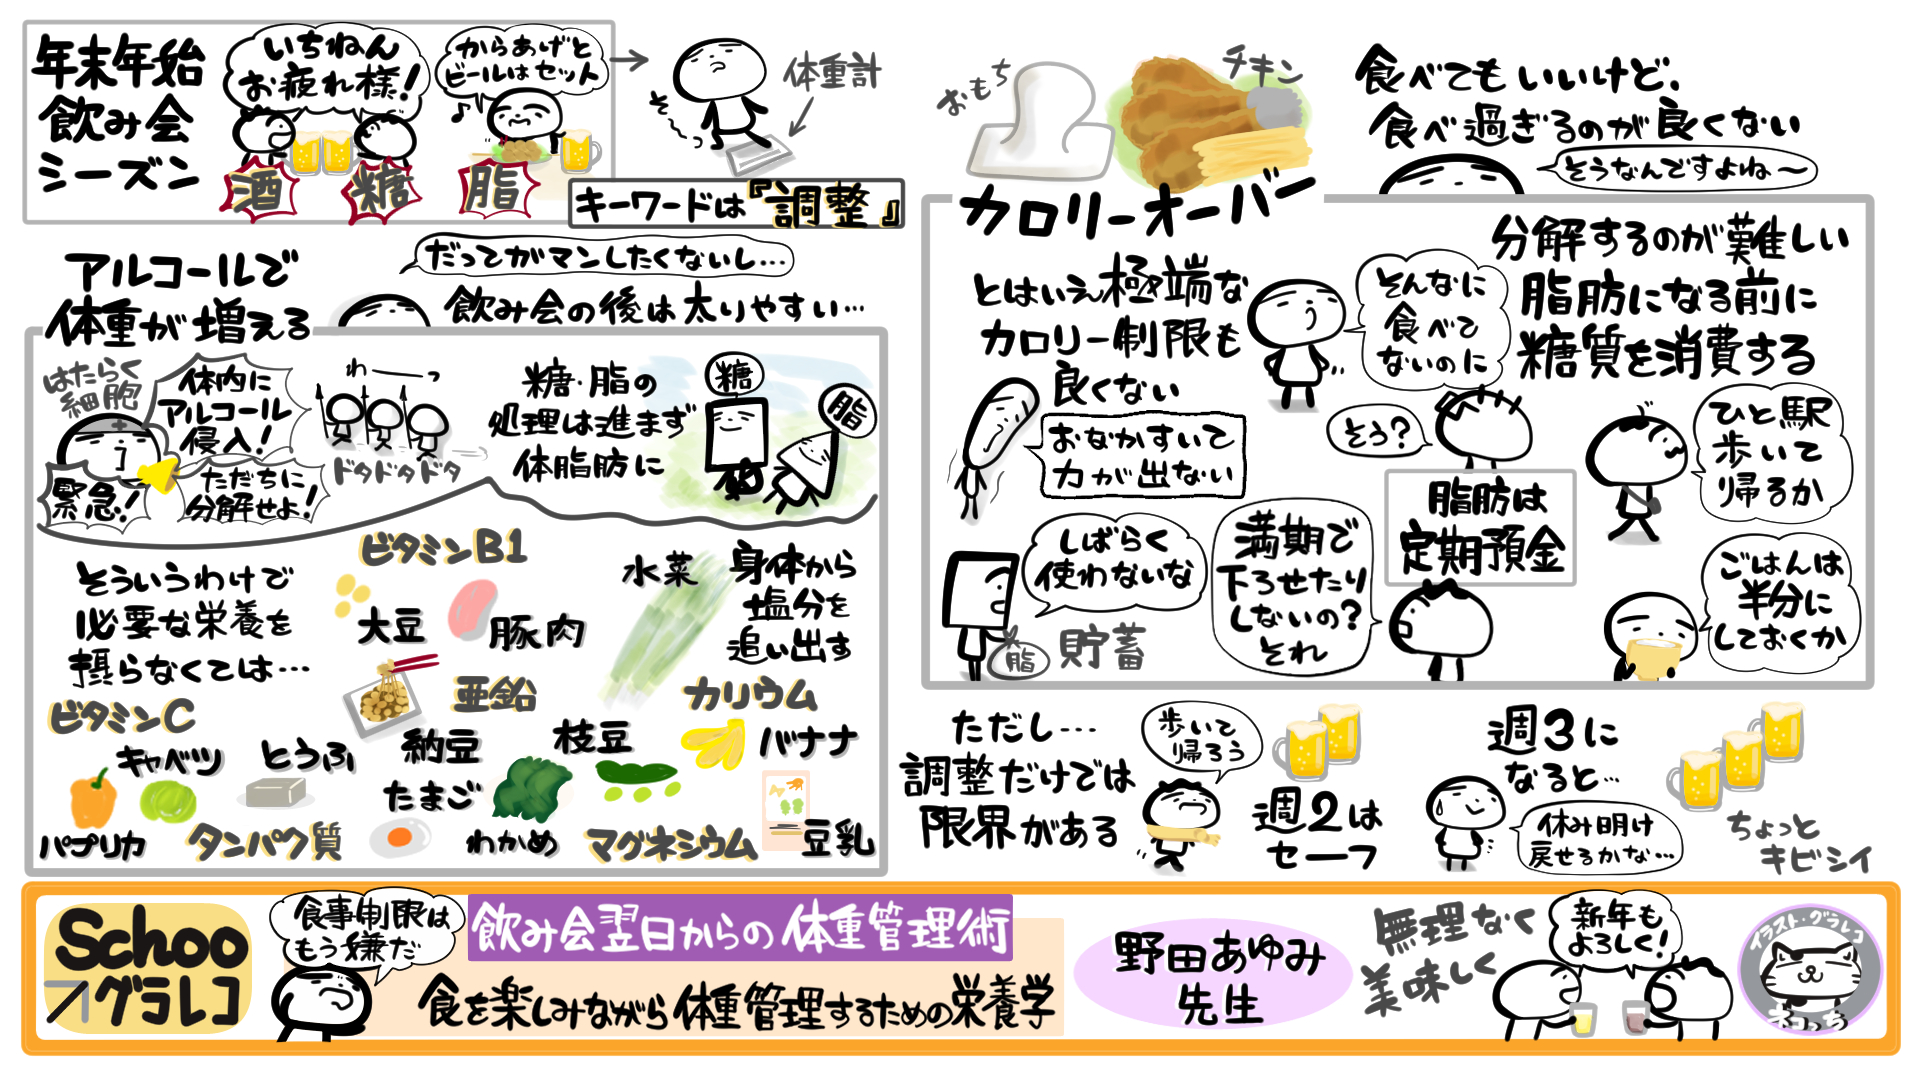 年末年始
飲み会
シーズン
いちねん
お疲れ様!
からあげと
ビールはセット
酒
糖
脂
そ〜っ
体重計
キーワードは『調整』
アルコールで
体重が増える
だってガマンしたくないし…
飲み会の後は太りやすい…
はたらく
細胞
体内に
アルコール
侵入!
緊急!
ただちに
分解せよ!
わーーっ
ドタドタドタ
糖・脂の
処理は進まず
体脂肪に
糖
脂
そういうわけで
必要な栄養を
摂らなくては…
ビタミンB1
大豆
豚肉
水菜
身体から
塩分を
追い出す
ビタミンC
キャベツ
パプリカ
とうふ
タンパク質
亜鉛
納豆
たまご
枝豆
わかめ
カリウム
バナナ
マグネシウム
豆乳
おもち
チキン
食べてもいいけど、
食べ過ぎるのが良くない
そうなんですよね〜
カロリーオーバー
とはいえ極端な
カロリー制限も
良くない
そんなに
食べて
ないのに
おなかすいて
力が出ない
しばらく
使わないな
脂
貯蓄
分解するのが難しい
脂肪になる前に
糖質を消費する
そう?
脂肪は
定期預金
満期で
下ろせたり
しないの?
それ
ひと駅
歩いて
帰るか
ごはんは
半分に
しておくか
ただし…
調整だけでは
限界がある
歩いて
帰ろう
週2は
セーフ
週3に
なると…
休み明け
戻せるかな…
ちょっと
キビシイ
Schoo
グラレコ
食事制限は
もう嫌だ
飲み会翌日からの体重管理術
食を楽しみながら体重管理するための栄養学
野田あゆみ
先生
無理なく
美味しく
新年も
よろしく!
イラスト・グラレコ
ネコっち